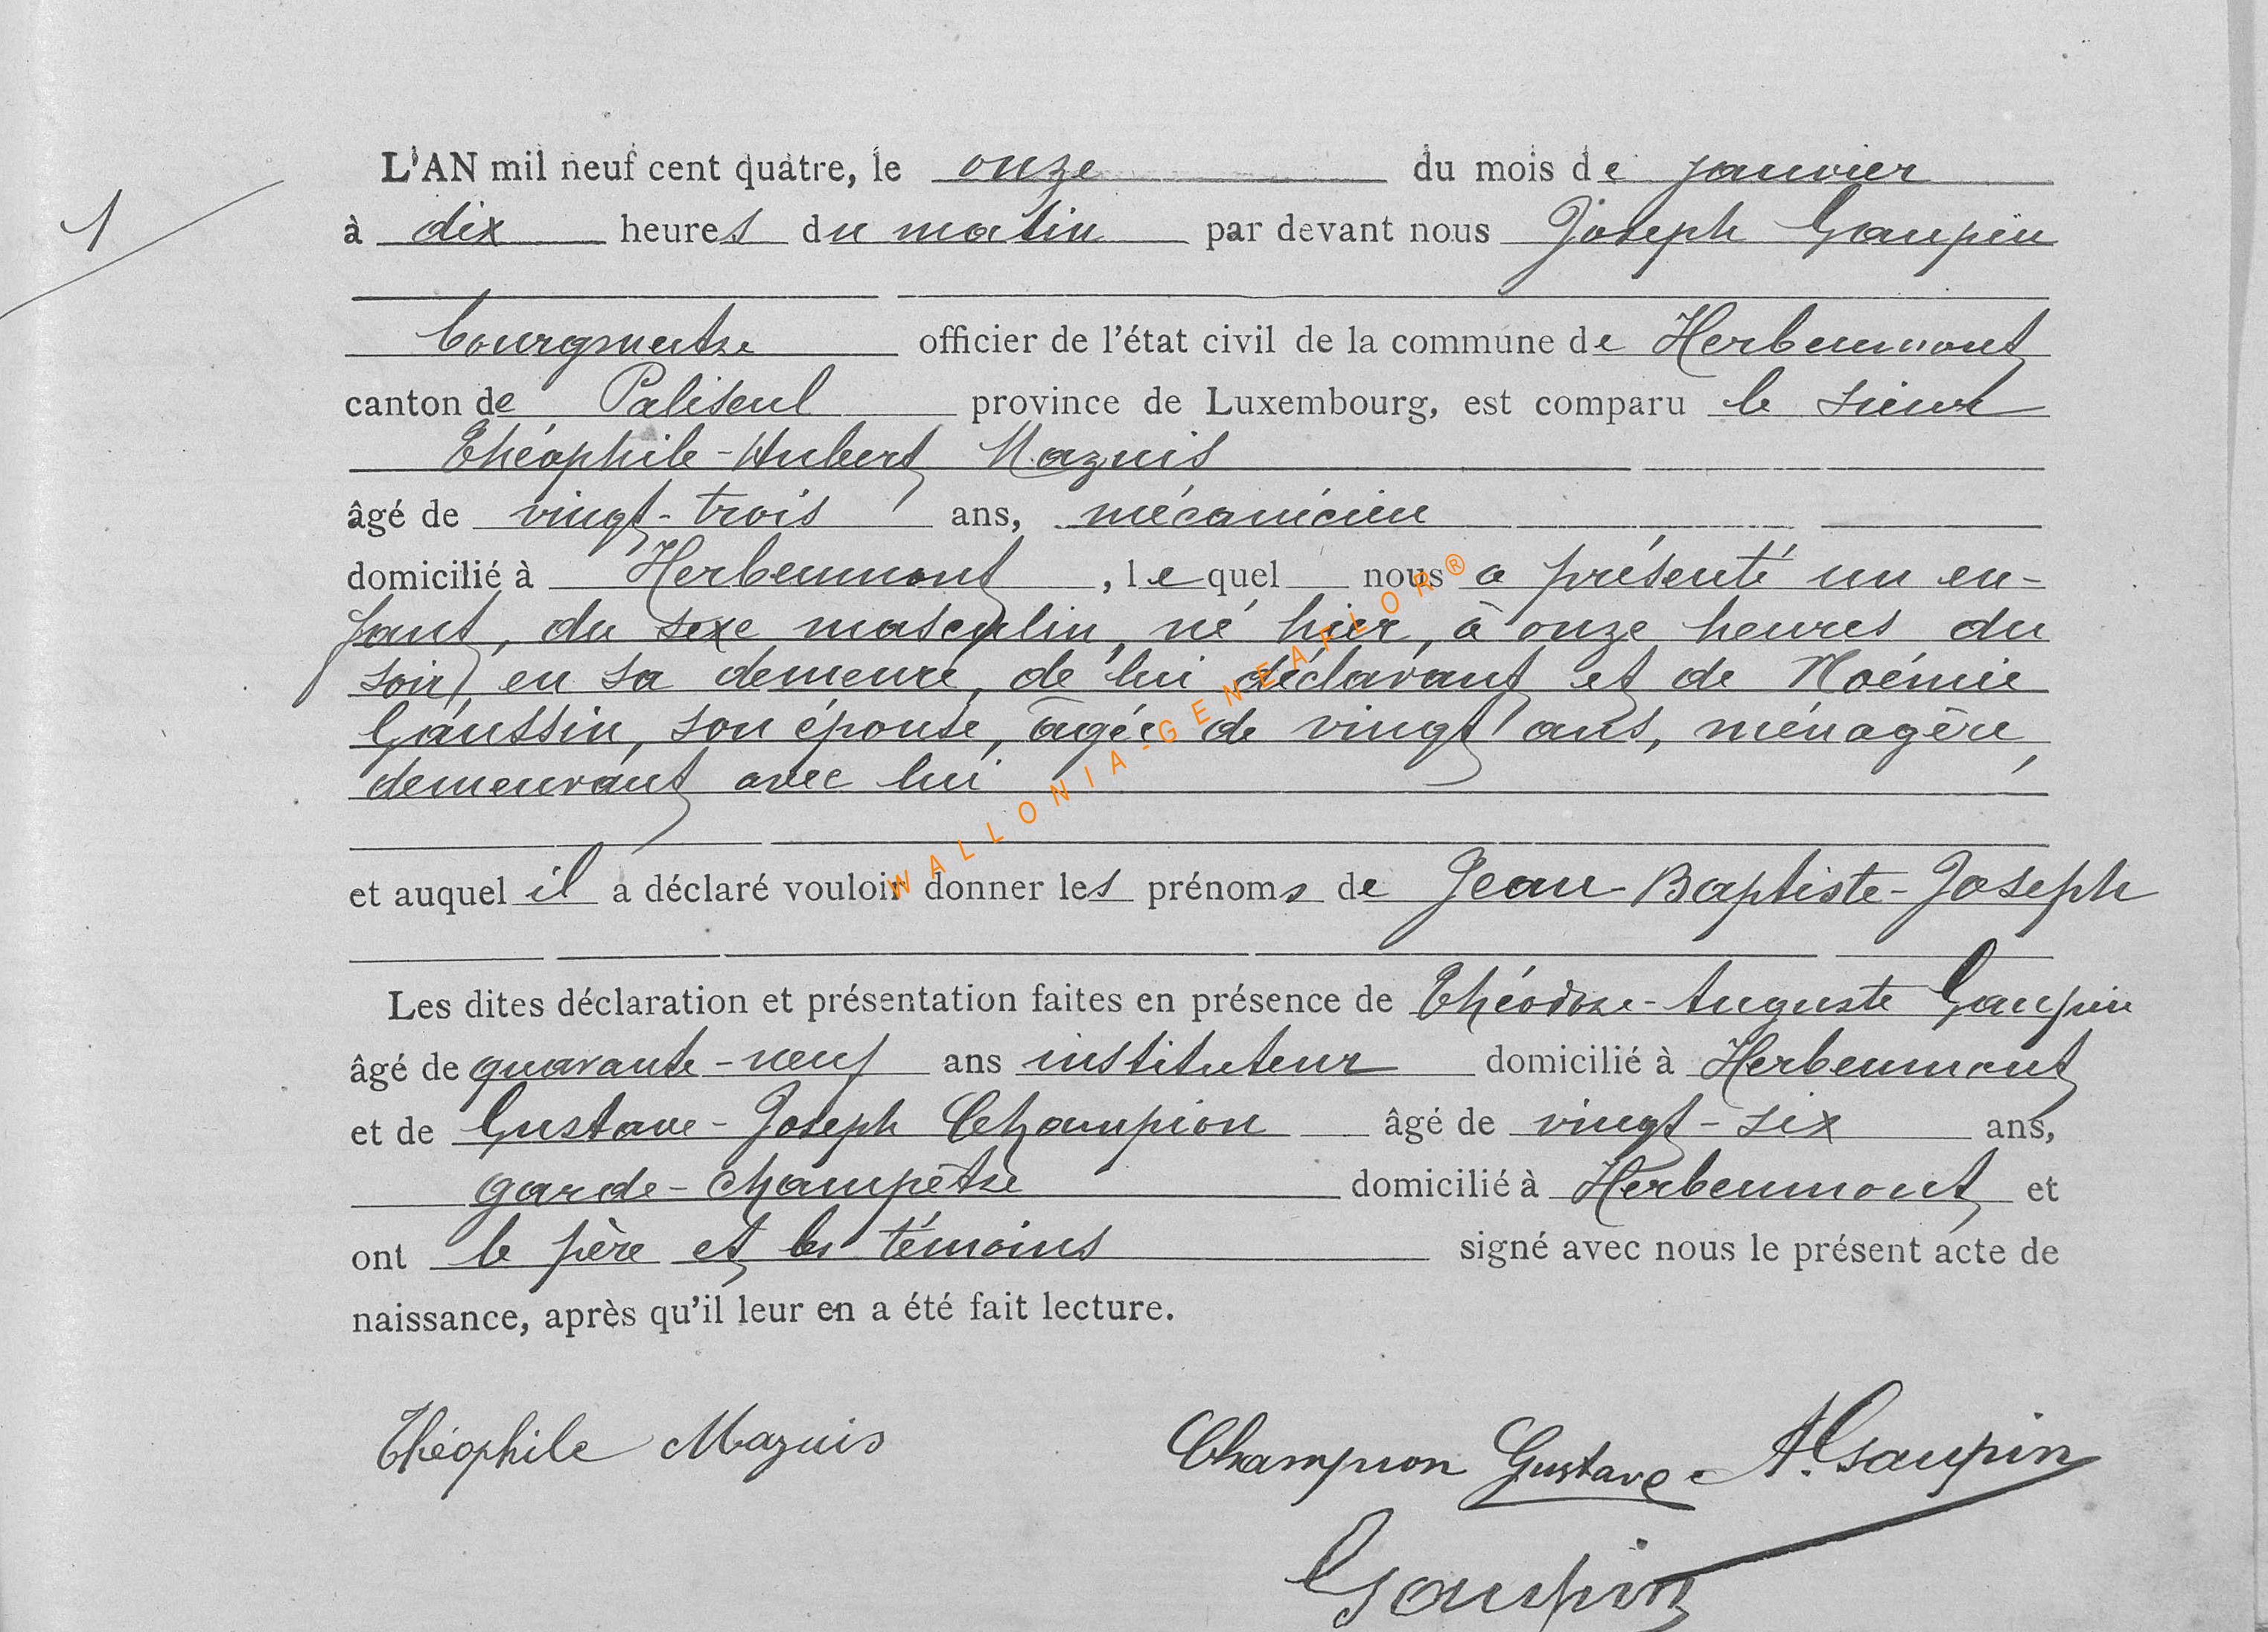 1
L'AN mil neuf cent quatre, le onze du mois de janvier
à dix heures du matin par devant nous Joseph Gaupin
bourgmestre officier de l'état civil de la commune de Herbeumont
canton de Paliseul province de Luxembourg, est comparu le sieur
Théophile-Hubert Mazuis
âgé de vingt-trois ans, mécanicien
domicilié à Herbeumont, lequel nous a présenté un en-
fant, du sexe masculin, né hier, à onze heures du
soir, en sa demeure, de lui déclarant et de Noémie
Gaussin, son épouse, âgée de vingt ans, ménagère,
demeurant avec lui
WALLONIA-GENEAFLOR®
et auquel il a déclaré vouloir donner les prénoms de Jean-Baptiste-Joseph
Les dites déclaration et présentation faites en présence de Théodore-Auguste Gaupin
âgé de quarante-neuf ans instituteur domicilié à Herbeumont
et de Gustave-Joseph Champion âgé de vingt-six ans,
garde-champêtre domicilié à Herbeumont et
ont le père et les témoins signé avec nous le présent acte de
naissance, après qu'il leur en a été fait lecture.
Théophile Mazuis Champion Gustave A. Gaupin
Gaupin